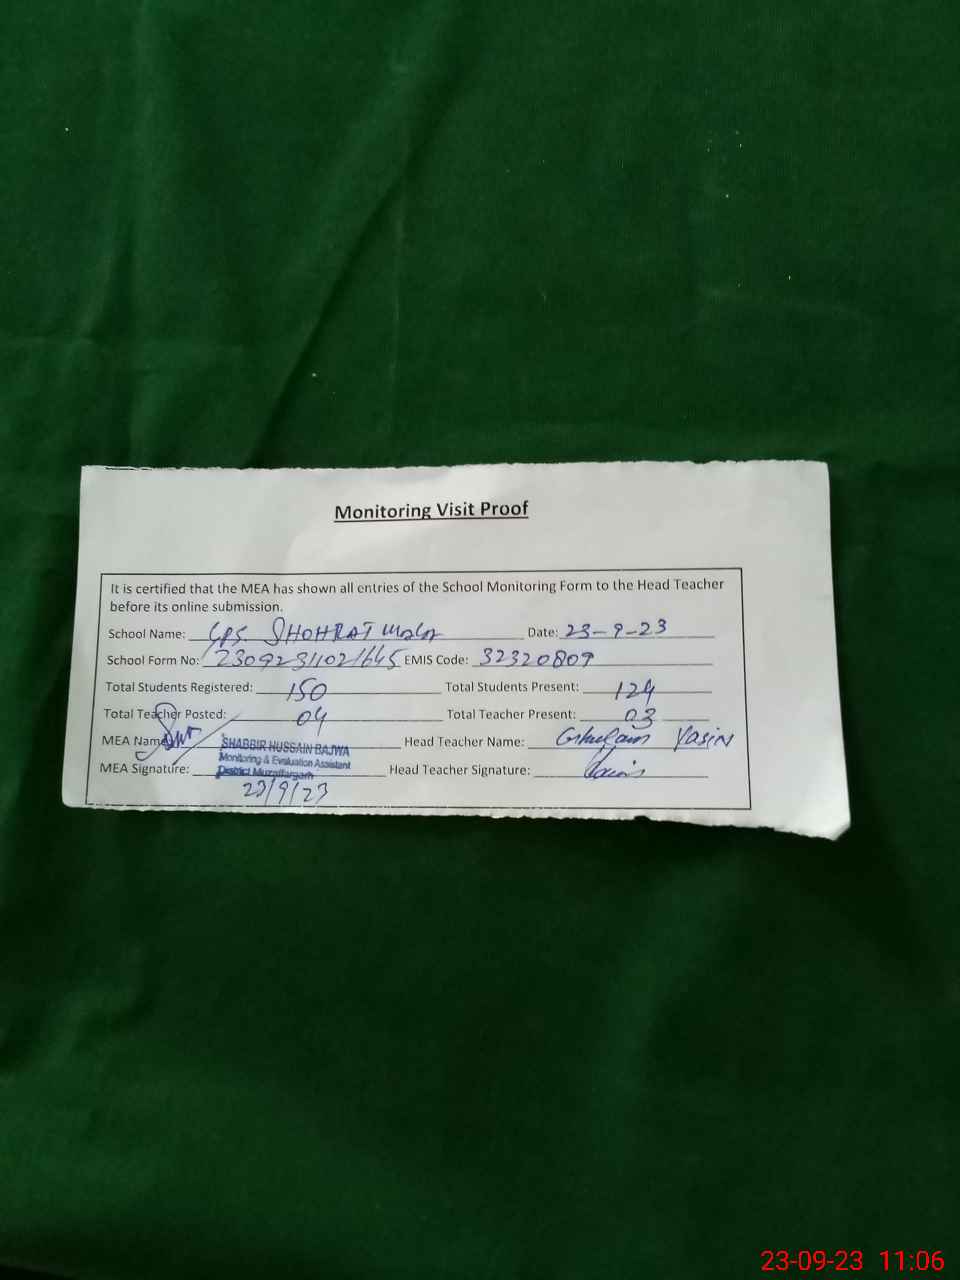 Monitoring Visit Proof
It is certified that the MEA has shown all entries of the School Monitoring Form to the Head Teacher
before its online submission.
School Name: GPS SHOHRAT Date: 23-9-23
School Form No: EMIS Code: 32320809
Total Students Registered: 150 Total Students Present: 124
Total Teacher Posted: 04 Total Teacher Present: 03
MEA Name: SHABBIR HUSSAIN BAJWA Head Teacher Name: Ghulam Yasin
Monitoring & Evaluation Assistant
MEA Signature: District Muzaffargarh Head Teacher Signature:
23/9/23
23-09-23 11:06